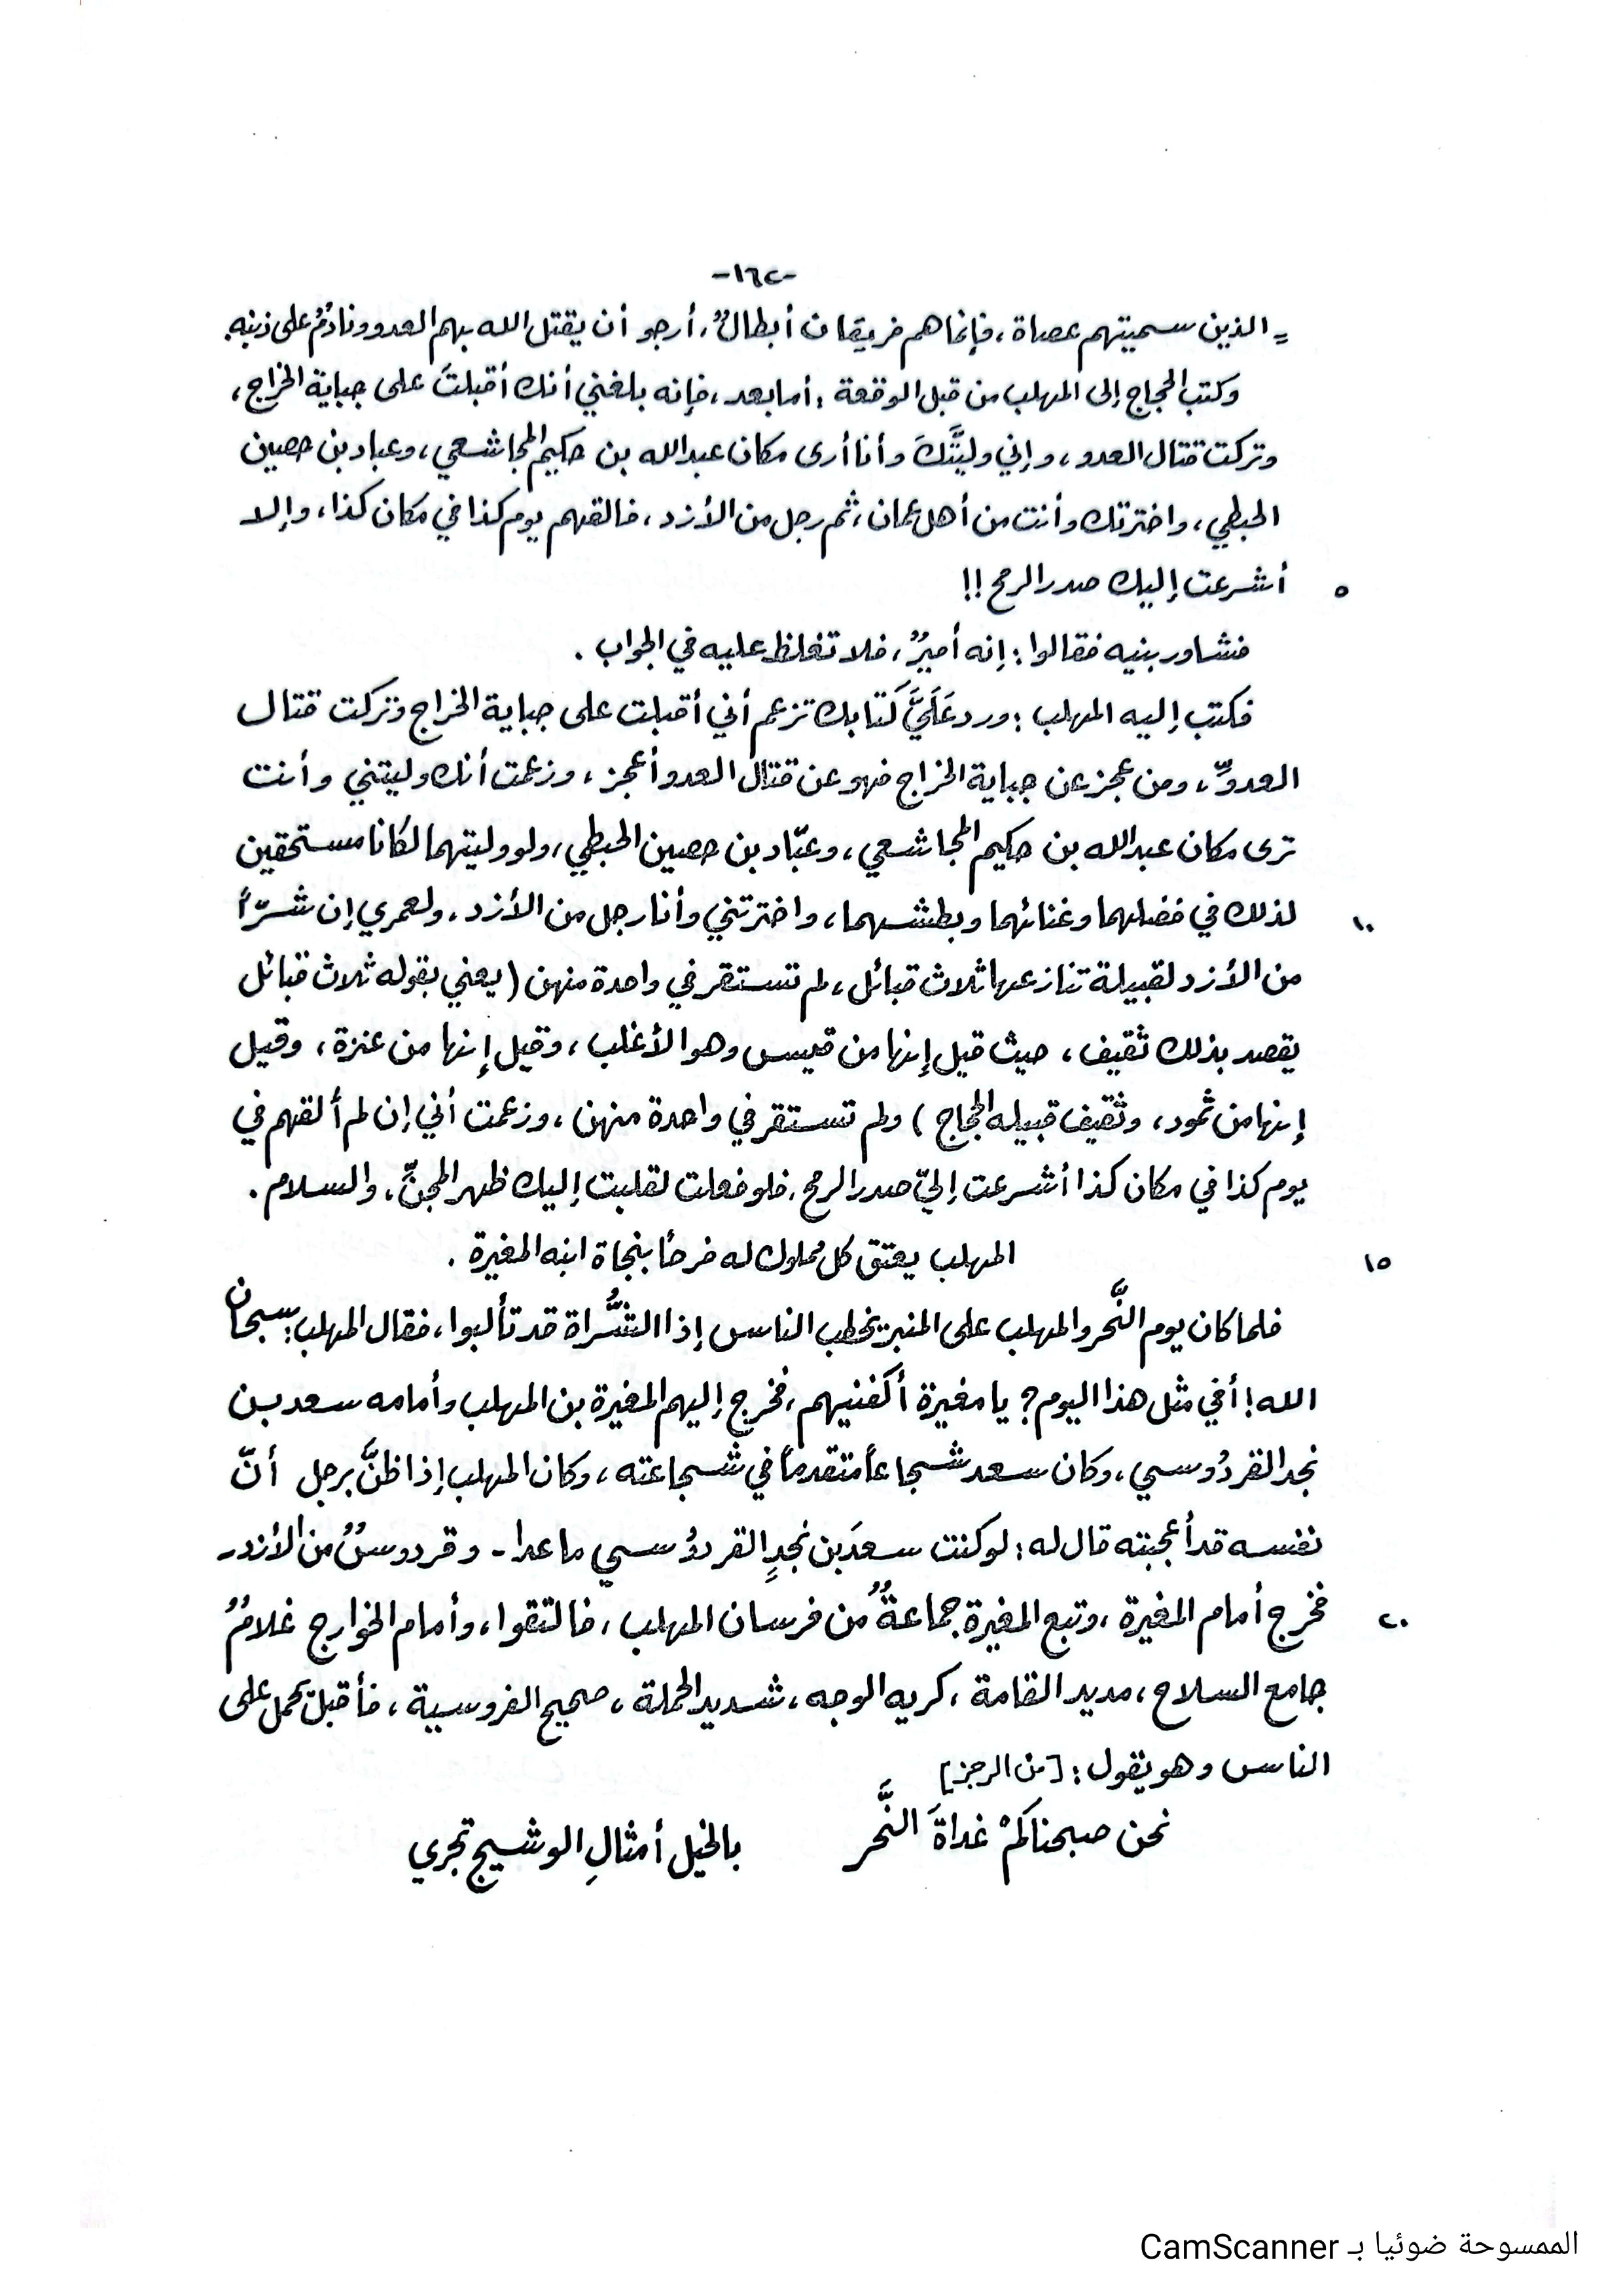 -١٦٢-
= الذين سميتهم عصاة، فإنما هم فريقان أبطالٌ، أرجو أن يقتل الله بهم العدو ونادمٌ على ذنبه.
وكتب الحجاج إلى المهلب من قبل الوقعة: أما بعد، فإنه بلغني أنك أقبلتَ على جباية الخراج،
وتركت قتال العدو، وإني وليتُّكَ وأنا أرى مكان عبدالله بن حكيم المجاشعي، وعباد بن حصين
الحبطي، واخترتك وأنت من أهل عمان، ثم رجل من الأزد، فالقهم يوم كذا في مكان كذا، وإلا
٥ أشرعت إليك صدر الرمح !!
فشاور بنيه فقالوا: إنه أميرٌ، فلا تغلظ عليه في الجواب.
فكتب إليه المهلب: ورد عَلَيَّ كتابك تزعم أني أقبلت على جباية الخراج وتركت قتال
العدوِّ، ومن عجز عن جباية الخراج فهو عن قتال العدو أعجز، وزعمت أنك وليتني وأنت
ترى مكان عبدالله بن حكيم المجاشعي، وعبّاد بن حصين الحبطي، ولو وليتهما لكانا مستحقين
١٠ لذلك في فضلهما وغنائهما وبطشهما، واخترتني وأنا رجل من الأزد، ولعمري إن شرّاً
من الأزد لقبيلة تنازعها ثلاث قبائل، لم تستقر في واحدة منهن (يعني بقوله ثلاث قبائل
يقصد بذلك ثقيف، حيث قيل إنها من قيس وهو الأغلب، وقيل إنها من عنزة، وقيل
إنها من ثمود، وثقيف قبيله الحجاج) ولم تستقر في واحدة منهن، وزعمت أني إن لم ألقهم في
يوم كذا في مكان كذا أشرعت إليّ صدر الرمح، فلو فعلت لقلبت إليك ظهر المجنِّ، والسلام.
١٥ المهلب يعتق كل مملوك له فرحاً بنجاة ابنه المغيرة.
فلما كان يوم النَّحر والمهلب على المنبر يخطب الناس إذا الشُّراة قد تألبوا، فقال المهلب: سبحان
الله! أفي مثل هذا اليوم؟ يا مغيرة أكفنيهم، فخرج إليهم المغيرة بن المهلب وأمامه سعد بن
نجد القردُوسي، وكان سعد شجاعاً متقدماً في شجاعته، وكان المهلب إذا ظنَّ برجل أنّ
نفسه قد أعجبته قال له: لو كنت سعدَ بن نجدٍ القردُوسي ما عدا - وقردوسٌ من الأزد -
٢٠ فخرج أمام المغيرة، وتبع المغيرة جماعةٌ من فرسان المهلب، فالتقوا، وأمام الخوارج غلامٌ
جامع السلاح، مديد القامة، كريه الوجه، شديد الحملة، صحيح الفروسية، فأقبل يحمل على
الناس وهو يقول: [من الرجز]
نحن صبحناكمْ غداةَ النَّحر بالخيل أمثالِ الوشيج تجري
الممسوحة ضوئيا بـ CamScanner